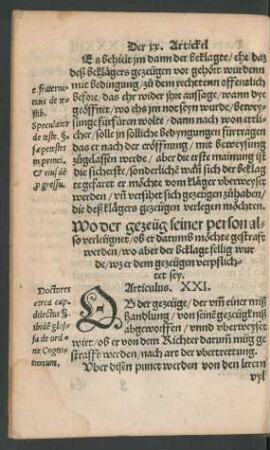 Der xx. Artickel
Es behielt jm dann der beklagte / ehe daz
deß beklägers gezeügen vor gehört wurdenn
mit bedingung / zů dem rechtenn offentlich
beuor / das ehr wider jhre aussage / wann dye
geöffnet / wo ehs jm not seyn wurde / bewey-
sunge fürfüren wolte / dann nach worn ert-
licher / solle jn söliche bedyngungen fürtragen
das er nach der eröffnung / mit beweysung
zůgelassen werde / aber die erste mainung ist
die sicherste / sonderliche wañ sich der beklag
te gefaret er möchte vom kläger vberweyset
werden / vñ versihet sich gezeügen zůhaben /
die deß klägers gezeügen verlegen möchten.
e. fraterni-
tatis de te-
stib.
Speculator
de teste. §.
Wo der gezeüg seiner person al-
so verleügnet / ob er darumb möchte gestraft
werden / wo aber der beklagte fellig wur
de / wz er dem gezeügen verpflich-
tet sey.
Articulus. XXI.
Doctores
circa cap.
dilectus §.
ibidē glos-
sa de ordi-
ne Cogni-
tionum.
OB der gezeüge / der vm̃ einer miß
handlung / von seinẽ gezeügkniß
abgeworffen / vnnd vberweyset
wirt / ob er von dem Richter darum̃ müg ge
strafft werden / nach art der vbertrettung.
Vber disen punct werden von den lerern
vyl